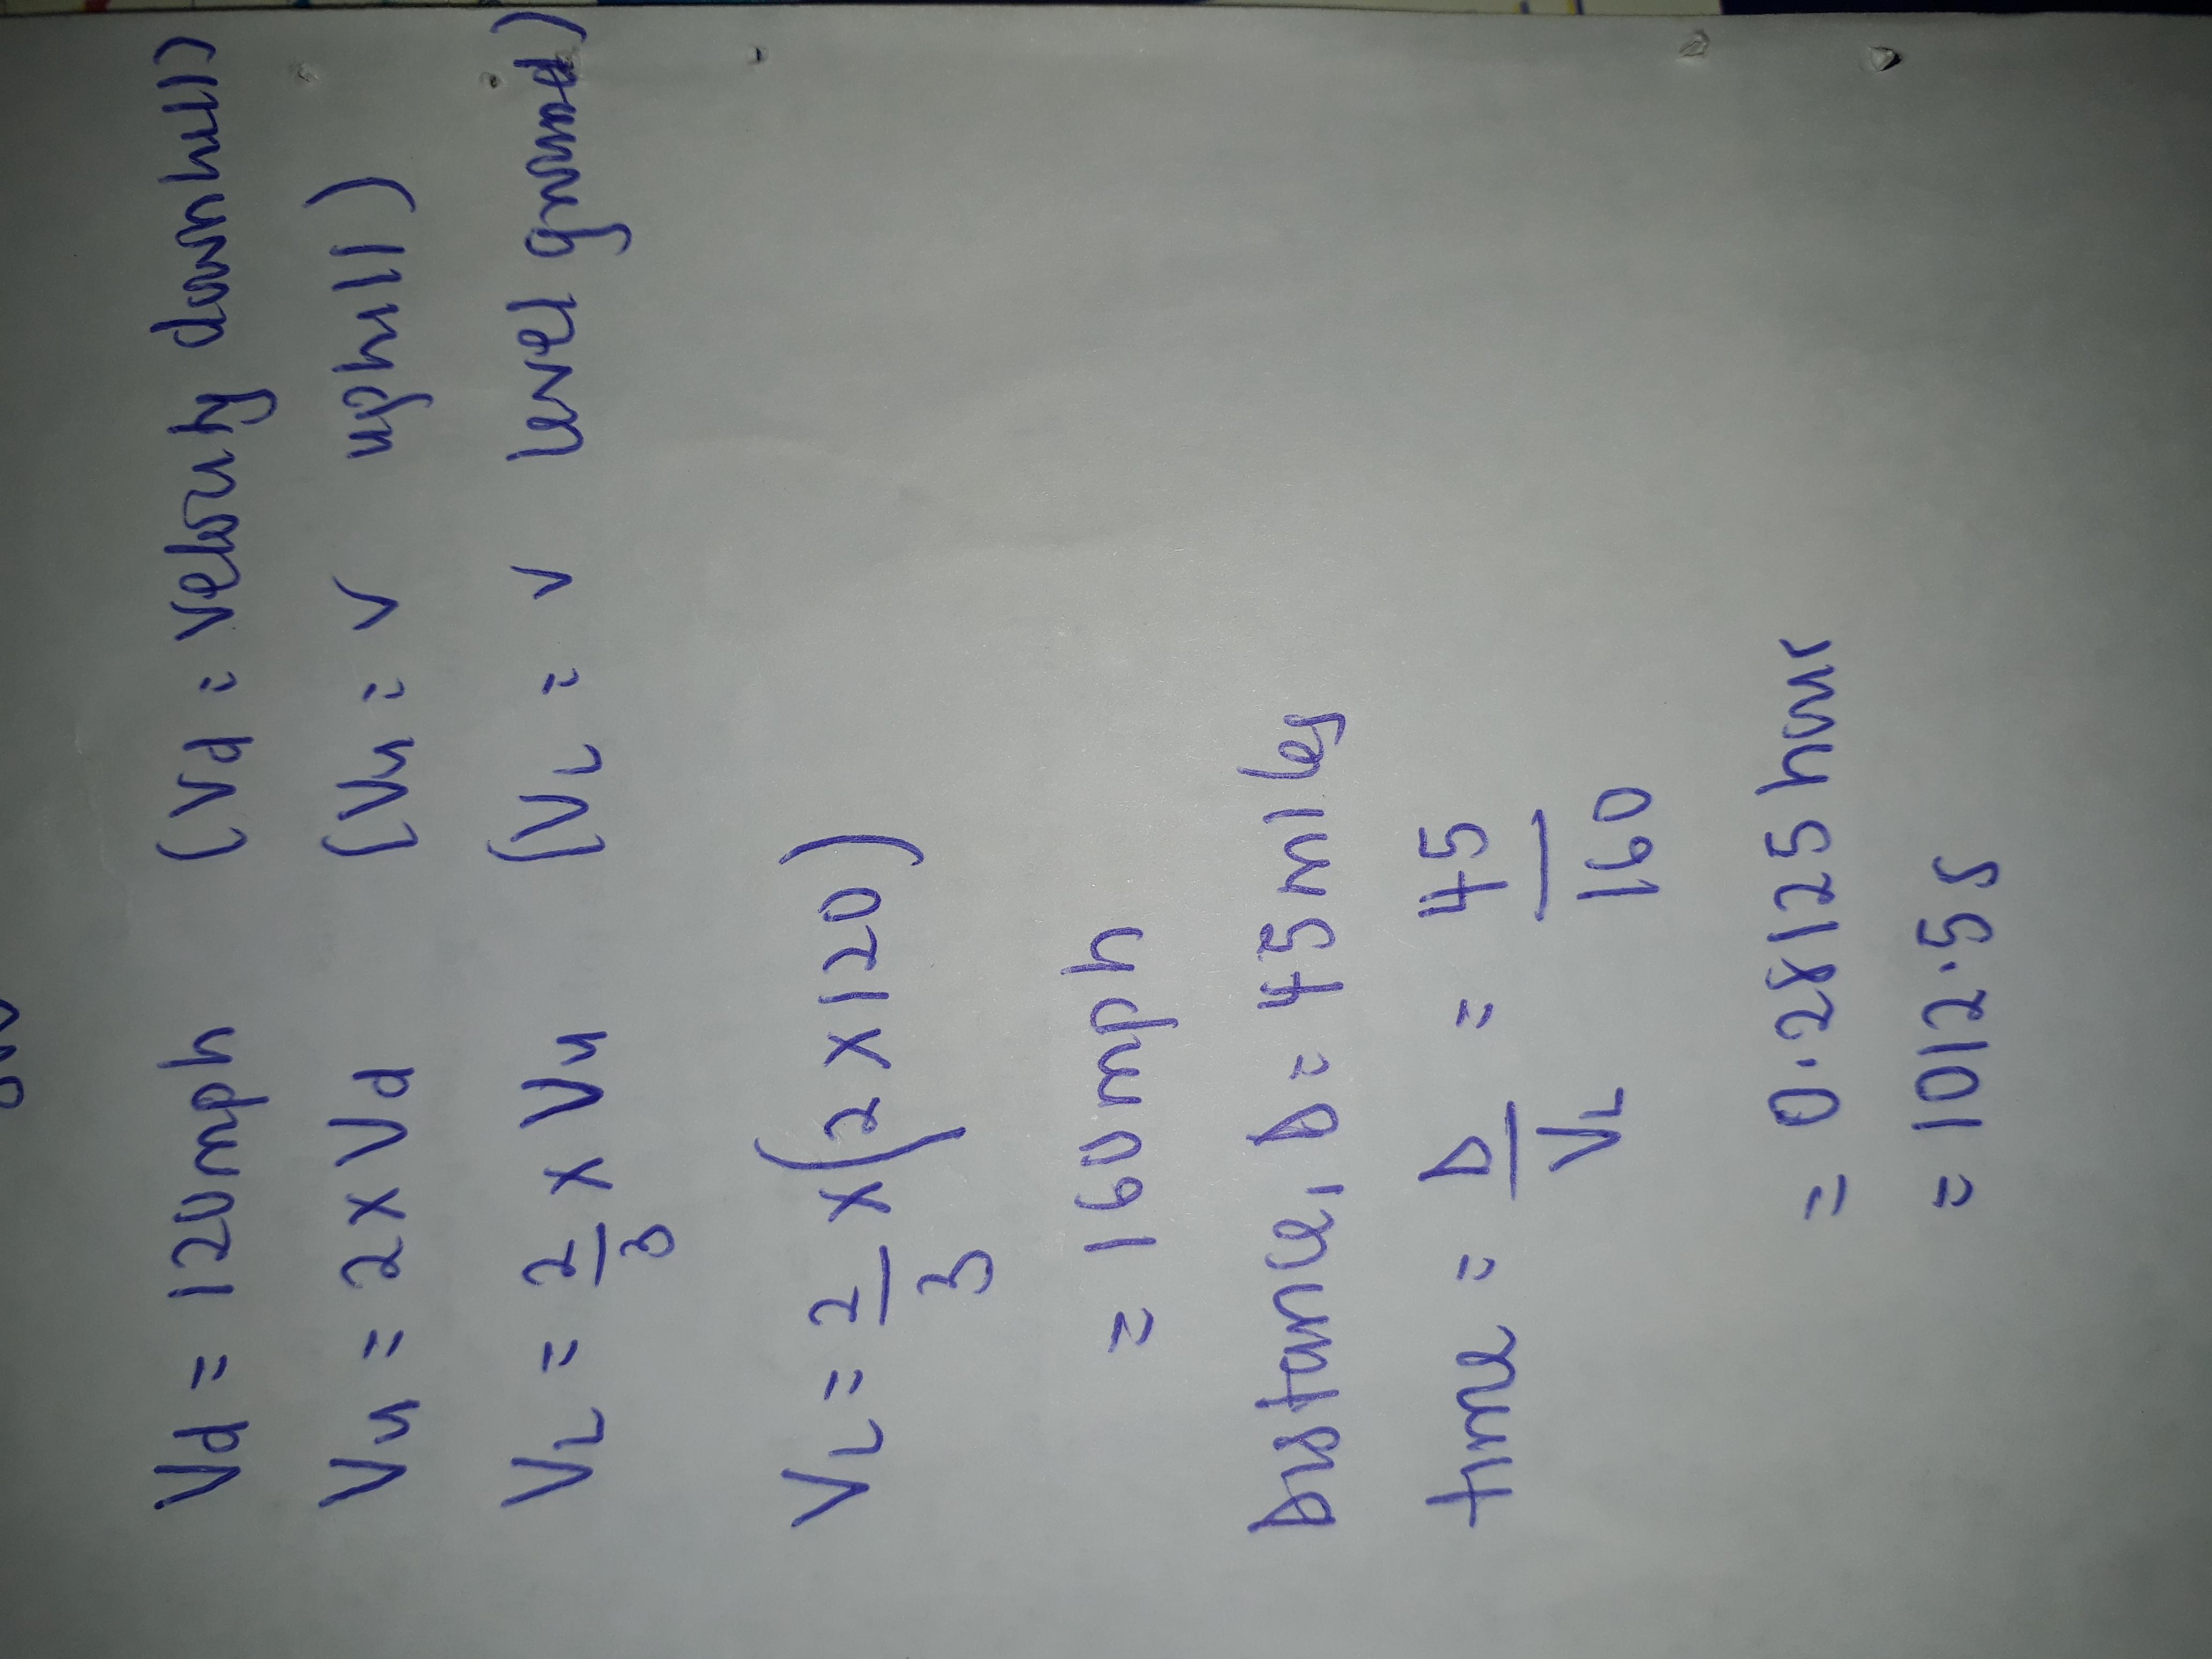 Vd = 120mph (Vd = velocity downhill)
Vu = 2 x Vd (Vu = v uphill)
VL = 2/3 x Vu (VL = v level ground)
VL = 2/3 x (2 x 120)
= 160mph
Distance, D = 45 miles
time = D/VL = 45/160
= 0.28125 hour
= 1012.5 s